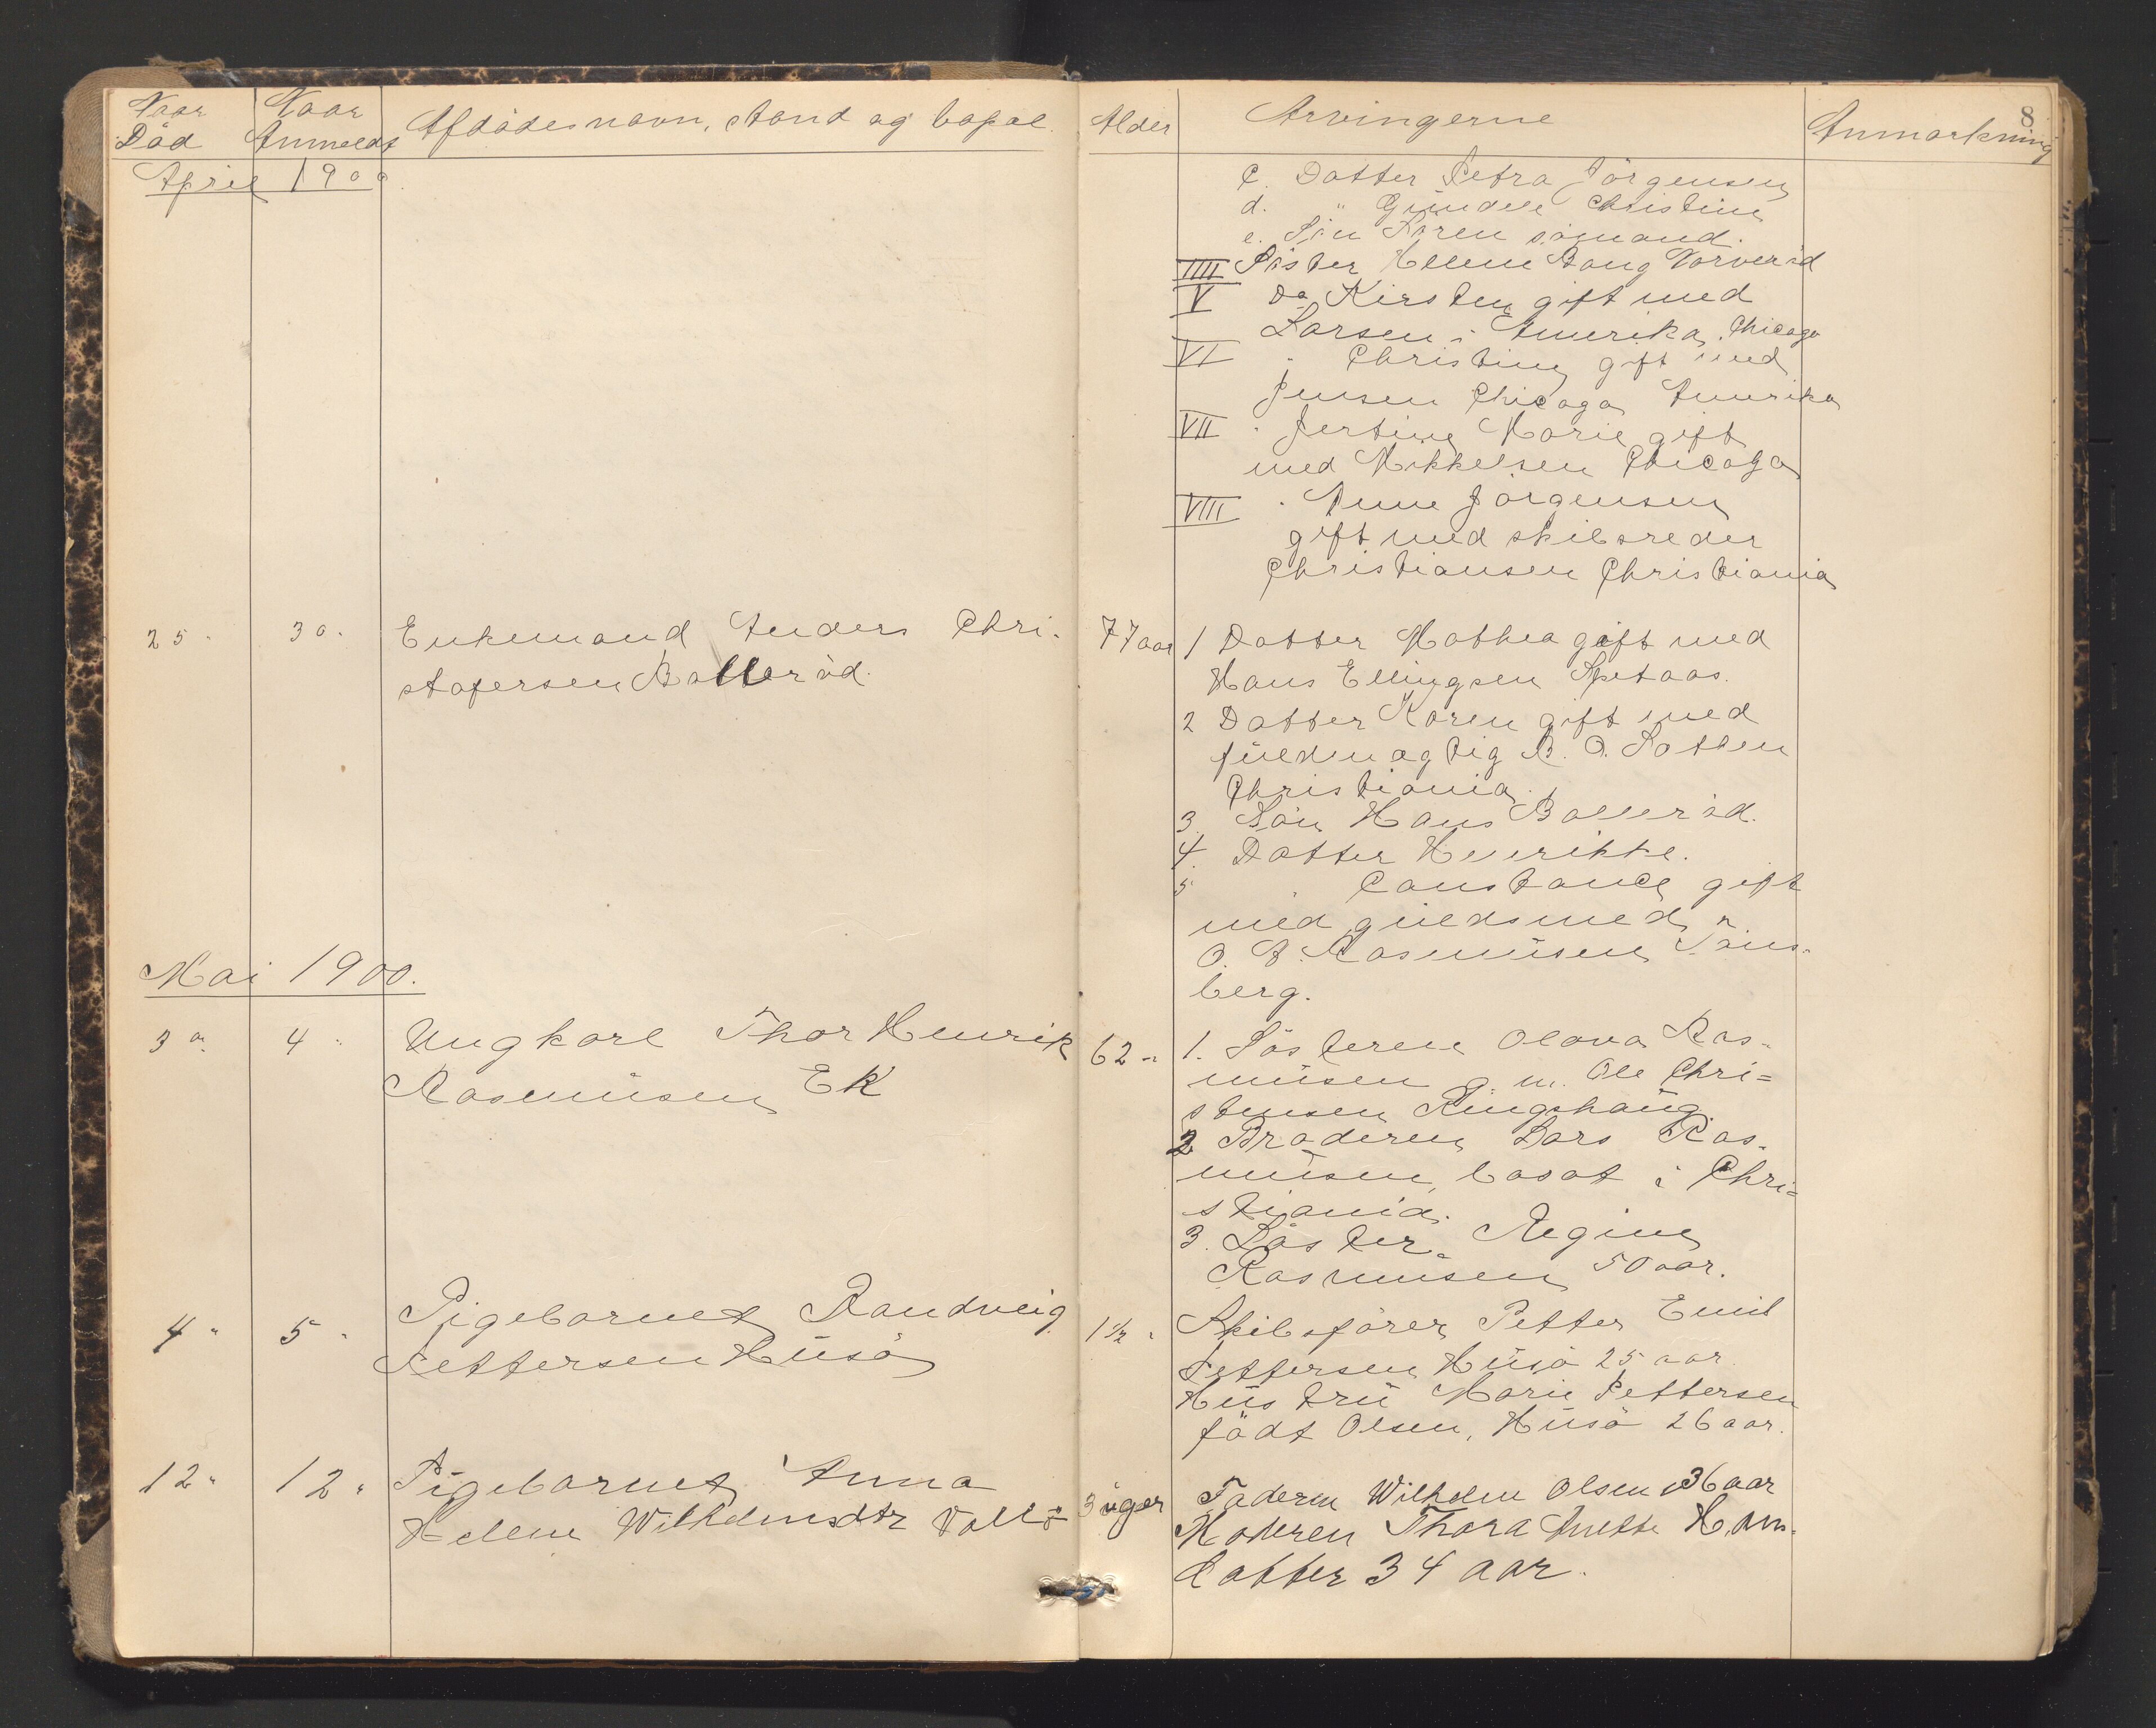 8
Naar Død
Naar Anmeldt
Afdødes navn, stand og bopæl
Alder
Arvingerne
Anmærkning
April 1900
c. Datter Petra Jörgensen
d. " Christine
e. Sön Søren sømand.
IIII Söster Ellen Bang Varveröd
V Do Kirsten gift med
Larsen i Amerika, Chicago
VI " Christine gift med
Jensen Chicago Amerika
VII " Jertine Marie gift
med Mikkelsen Chicago
VIII " Anne Jörgensen
gift med skibsreder
Christiansen Christiania
25 " 30 " Enkemand Anders Chri-
stofersen Balleröd.
77 aar
1 Datter Mathea gift med
Hans Ellingsen
2 Datter Karen gift med
fuldmægtig O. Sothen
Christiania.
3. Sön Hans Balleröd.
4. Datter Henrikke.
5 " Constance gift
med guldsmed
O. A. Rasmusen Töns-
berg.
Mai 1900.
3 " 4 " Ungkarl Thor Henrik
Rasmusen EK
62 "
1. Søsteren Olava Ras-
musen g. m. Ole Chri=
stensen Ringshaug.
2 Broderen Lars Ras-
musen, bosat i Chri=
stiania.
3. Söster Regine
Rasmusen 50 aar.
4 " 5 " Pigebarnet Randveig
Pettersen Husö
1 1/2 "
Skibsfører Petter Emil
Pettersen Husö 25 aar
Hustru Marie Pettersen
födt Olsen, Husö 26 aar.
12 " 12 " Pigebarnet Anna
Helene Wilhelmsdtr Vallö
3 uger
Faderen Wilhelm Olsen 36 aar
Moderen Thora Anette Han-
datter 34 aar.